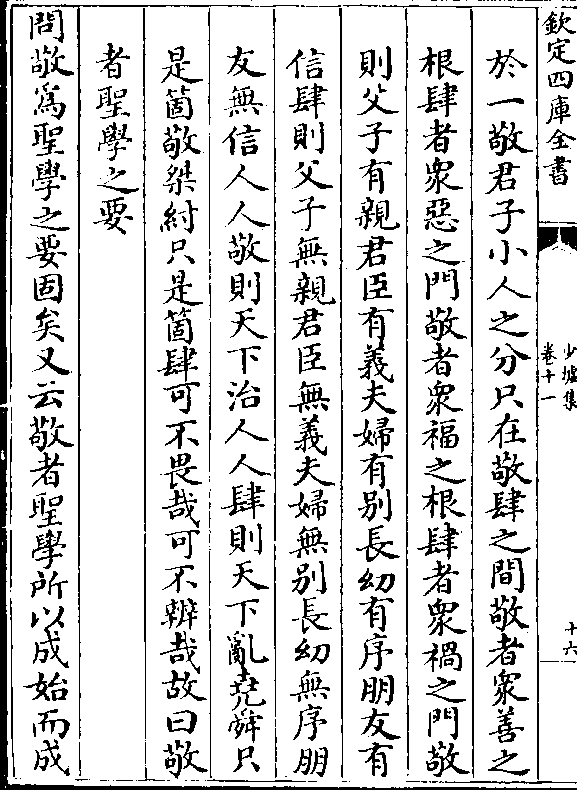 欽定四庫全書
少墟集
卷十一
十六
於一敬君子小人之分只在敬肆之間敬者衆善之
根肆者衆惡之門敬者衆福之根肆者衆禍之門敬
則父子有親君臣有義夫婦有别長幼有序朋友有
信肆則父子無親君臣無義夫婦無别長幼無序朋
友無信人人敬則天下治人人肆則天下亂堯舜只
是箇敬桀紂只是箇肆可不畏哉可不辨哉故曰敬
者聖學之要
問敬為聖學之要固矣又云敬者聖學所以成始而成